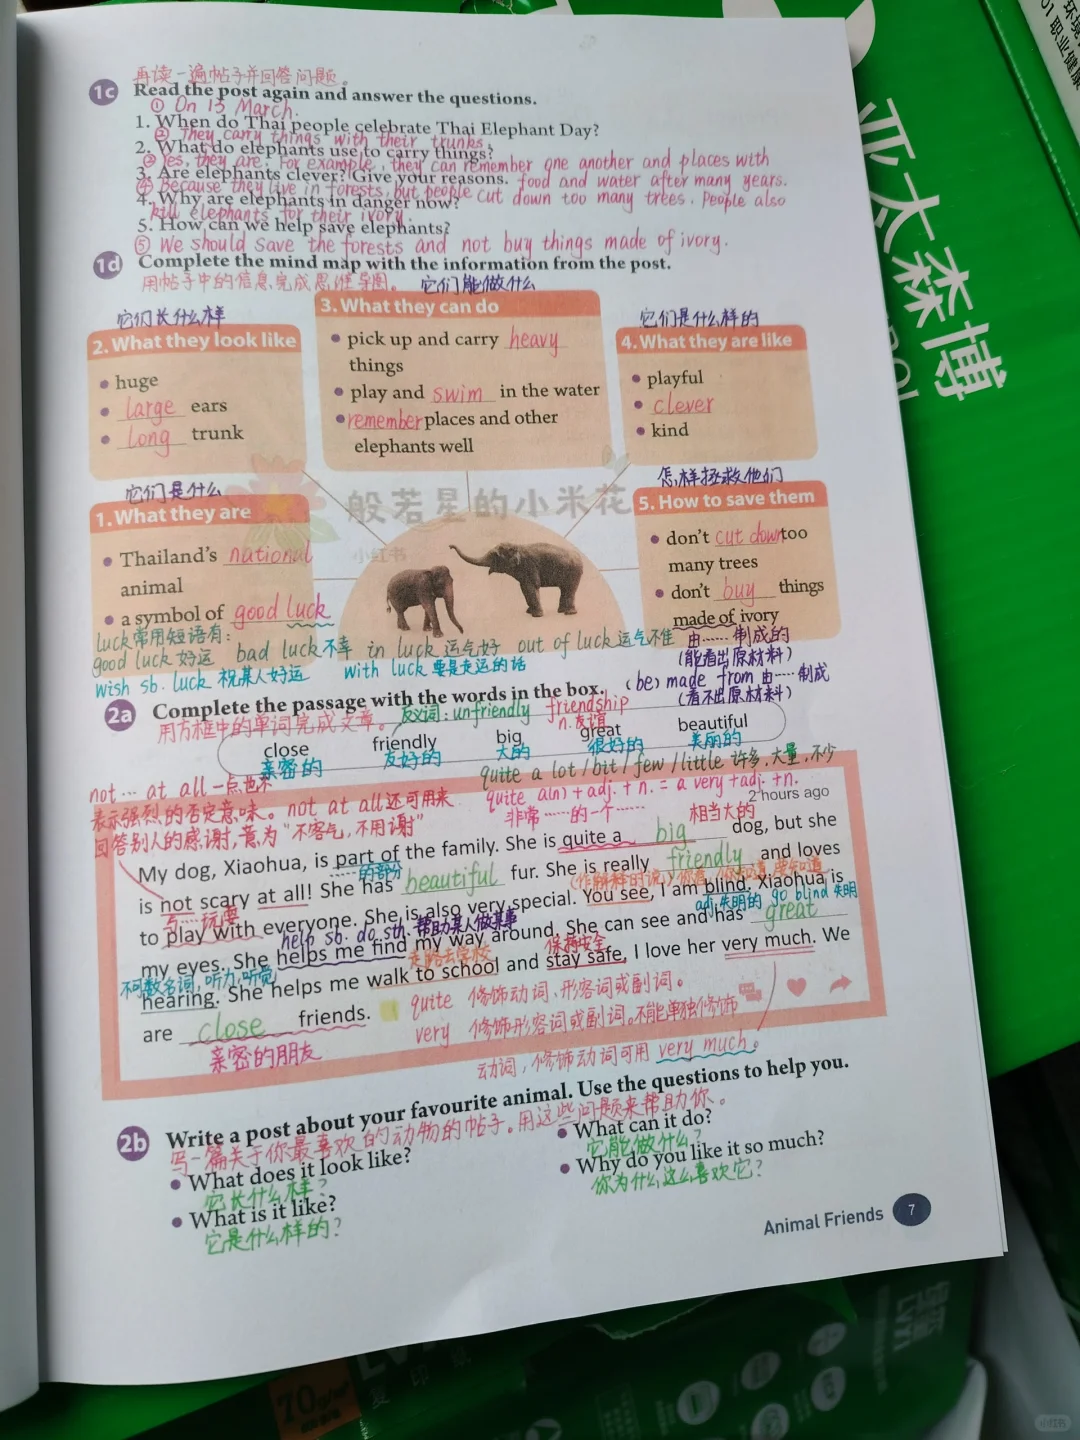 再读一遍帖子并回答问题。
1c Read the post again and answer the questions.
① On 13 March.
1. When do Thai people celebrate Thai Elephant Day?
② They carry things with their trunks.
2. What do elephants use to carry things?
③ Yes, they are. For example, they can remember one another and places with
3. Are elephants clever? Give your reasons. food and water after many years.
④ Because they live in forests, but people cut down too many trees. People also
4. Why are elephants in danger now?
kill elephants for their ivory.
5. How can we help save elephants?
⑤ We should save the forests and not buy things made of ivory.
1d Complete the mind map with the information from the post.
用帖子中的信息完成思维导图。
它们能做什么
3. What they can do
• pick up and carry heavy
things
• play and swim in the water
• remember places and other
elephants well
它们长什么样
2. What they look like
• huge
• large ears
• long trunk
它们是什么样的
4. What they are like
• playful
• clever
• kind
它们是什么
1. What they are
• Thailand's national
animal
• a symbol of good luck
怎样拯救他们
5. How to save them
• don't cut down too
many trees
• don't buy things
made of ivory
般若星的小米花
小红书
luck常用短语有:
good luck 好运 bad luck 不幸 in luck 运气好 out of luck 运气不佳
wish sb. luck 祝某人好运 with luck 要是走运的话
由……制成的
(能看出原材料)
(be) made from 由……制成
(看不出原材料)
2a Complete the passage with the words in the box.
用方框中的单词完成文章。
反义词: unfriendly friendship
n.友谊
close friendly big great beautiful
亲密的 友好的 大的 很好的 美丽的
quite a lot / bit / few / little 许多,大量,不少
not … at all 一点也不
quite a(n) + adj. + n. = a very + adj. + n.
表示强烈的否定意味。not at all 还可用来
非常……的一个……
回答别人的感谢,意为“不客气,不用谢”
2 hours ago
相当大的
My dog, Xiaohua, is part of the family. She is quite a big dog, but she
……的部分
is not scary at all! She has beautiful fur. She is really friendly and loves
与…玩耍
to play with everyone. She is also very special. You see, I am blind. Xiaohua is
adj.失明的 go blind 失明
help sb. do sth. 帮助某人做某事
my eyes. She helps me find my way around. She can see and has great
不可数名词,听力,听觉
走路去学校
保持安全
hearing. She helps me walk to school and stay safe. I love her very much. We
are close friends.
亲密的朋友
quite 修饰动词、形容词或副词。
very 修饰形容词或副词。不能单独修饰
动词,修饰动词可用 very much。
2b Write a post about your favourite animal. Use the questions to help you.
写一篇关于你最喜欢的动物的帖子。用这些问题来帮助你。
• What does it look like?
它长什么样?
• What is it like?
它是什么样的?
• What can it do?
它能做什么?
• Why do you like it so much?
你为什么这么喜欢它?
Animal Friends 7
亚太森博
70g/m²
复印纸
小红书